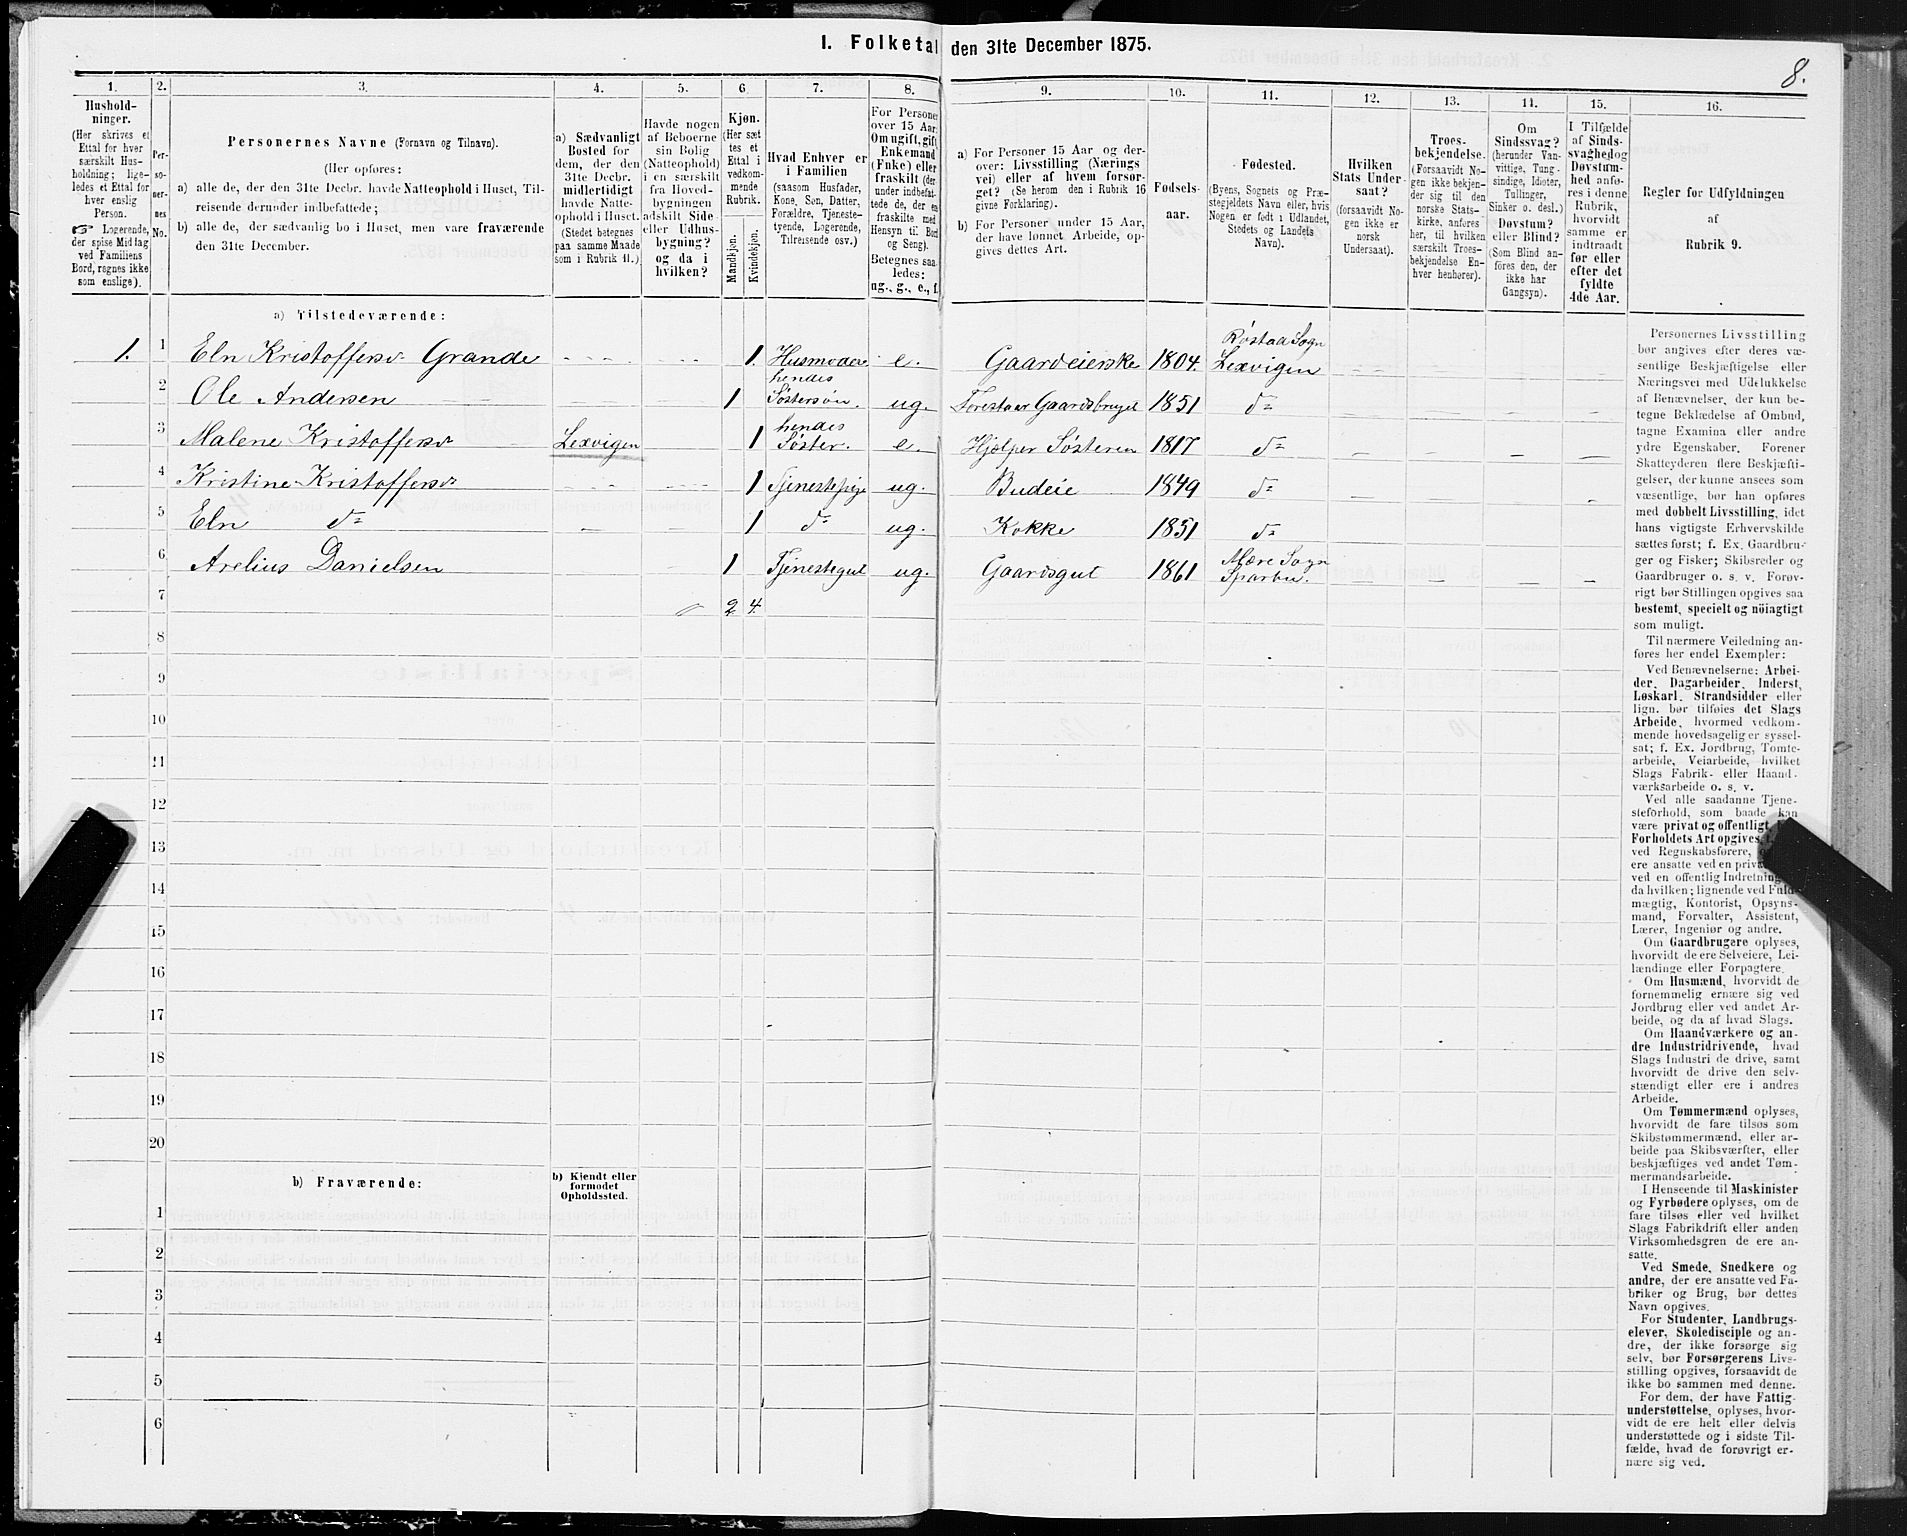 8.
I. Folketal den 31te December 1875.
1.
Hushold-
ninger.
(Her skrives et
Ettal for hver
særskilt Hus-
holdning; lige-
ledes et Ettal for
hver enslig
Person.
☞ Logerende,
der spise Middag
ved Familiens
Bord, regnes ikke
som enslige).
2.
Per-
so-
ner-
nes
No.
3.
Personernes Navne (Fornavn og Tilnavn).
(Her opføres:
a) alle de, der den 31te Decbr. havde Natteophold i Huset, Til-
reisende derunder indbefattede;
b) alle de, der sædvanlig bo i Huset, men vare fraværende
den 31te December.
4.
a) Sædvanligt
Bosted for
dem, der den
31te Decbr.
midlertidigt
havde Natte-
ophold i Huset.
(Stedet betegnes
paa samme Maade
som i Rubrik 11.)
5.
Havde nogen
af Beboerne
sin Bolig
(Natteophold)
i en særskilt
fra Hoved-
bygningen
adskilt Side-
eller Udhus-
bygning?
og da i
hvilken?
6
Kjøn.
(Her sæt-
tes et
Ettal i
vedkom-
mende
Rubrik.
Mandkjøn.
Kvindekjøn.
7.
Hvad Enhver er
i Familien
(saasom Husfader,
Kone, Søn, Datter,
Forældre, Tjeneste-
tyende, Logerende,
Tilreisende osv.)
8.
For Personer
over 15 Aar:
Om ugift, gift,
Enkemand
(Enke) eller
fraskilt (der-
under indbefat-
tede de, der ere
fraskilte med
Hensyn til Bord
og Seng).
Betegnes saa-
ledes:
ug., g., e., f.
9.
a) For Personer 15 Aar og der-
over: Livsstilling (Nærings-
vei) eller af hvem forsør-
get? (Se herom den i Rubrik 16
givne Forklaring).
b) For Personer under 15 Aar,
der have lønnet Arbeide, op-
gives dettes Art.
10.
Fødsels-
aar.
11.
Fødested.
(Byens, Sognets og Præ-
stegjeldets Navn eller, hvis
Nogen er født i Udlandet,
Stedets og Landets
Navn).
12.
Hvilken
Stats Under-
saat?
(forsaavidt No-
gen ikke er
norsk
Undersaat).
13.
Troes-
bekjendelse.
(Forsaavidt No-
gen ikke bekjen-
der sig til den
norske Stats-
kirke, anføres
her, til hvilken
særskilt Troes-
bekjendelse En-
hver henhører).
14.
Om
Sindssvag?
(herunder Van-
vittige, Tung-
sindige, Idioter,
Tullinger,
Sinker o. desl.)
Døvstum?
eller Blind?
(Som Blind an-
føres den, der
ikke har
Gangsyn).
15.
I Tilfælde
af Sinds-
svaghed og
Døvstum-
hed anfø-
res i denne
Rubrik,
hvorvidt
samme er
indtraadt
før eller
efter det
fyldte
4de Aar.
16.
Regler for Udfyldningen
af
Rubrik 9.
a) Tilstedeværende:
1. 1 Eln Kristoffersdr Grande 1. Husmoder e. Gaardeierske 1804. Røstad Sogn Lexvigen
2 Ole Andersen 1 hendes Søstersøn. ug. Forestaar Gaardsbruget 1851 do
3 Malene Kristoffersdr Lexvigen 1 hendes Søster. e. Hjælper Søsteren 1817 do
4 Kristine Kristoffersdr 1 Tjenestepige ug. Budeie 1849 do
5 Eln do 1 do ug. Kokke 1851 do
6 Arelius Danielsen 1 Tjenestegut ug. Gaardsgut 1861 Mære Sogn Sparbu.
7 2 4.
8
9
10
11
12
13
14
15
16
17
18
19
20
b) Fraværende:
b) Kjendt eller
formodet
Opholdssted.
1
2
3
4
5
6
Personernes Livsstilling
bør angives efter deres væ-
sentlige Beskjæftigelse eller
Næringsvei med Udelukkelse
af Benævnelser, der kun be-
tegne Beklædelse af Ombud,
tagne Examina eller andre
ydre Egenskaber. Forener
Skatteyderen flere Beskjæfti-
gelser, der kunne ansees som
væsentlige, bør han opføres
med dobbelt Livsstilling, idet
hans vigtigste Erhvervskilde
sættes først; f. Ex. Gaardbru-
ger og Fisker; Skibsreder og
Gaardbruger o. s. v. Forøv-
rigt bør Stillingen opgives saa
bestemt, specielt og nöiagtigt
som muligt.
Til nærmere Veiledning an-
føres her endel Exempler:
Ved Benævnelserne: Arbei-
der, Dagarbeider, Inderst,
Løskarl, Strandsidder eller
lign. bør tilføies det Slags
Arbeide, hvormed vedkom-
mende hovedsagelig er syssel-
sat; f. Ex. Jordbrug, Tomte-
arbeide, Veiarbeide, hvilket
Slags Fabrik- eller Haand-
værksarbeide o. s. v.
Ved alle saadanne Tjene-
steforhold, som baade kan
være privat og offentligt,
Forholdets Art opgives,
ved Regnskabsførere,
ere ansatte ved en
ved en offentlig Indretning
da hvilken; lignende ved Fuld-
mægtig, Kontorist, Opsyns-
mand, Forvalter, Assistent,
Lærer, Ingeniør og andre.
Om Gaardbrugere oplyses,
hvorvidt de ere Selveiere, Lei-
lændinge eller Forpagtere.
Om Husmænd, hvorvidt de
fornemmelig ernære sig ved
Jordbrug eller ved andet Ar-
beide, og da af hvad Slags.
Om Haandværkere og an-
dre Industridrivende, hvad
Slags Industri de drive, samt
hvorvidt de drive den selv-
stændigt eller ere i andres
Arbeide.
Om Tømmermænd oplyses,
hvorvidt de fare tilsøs som
Skibstømmermænd, eller ar-
beide paa Skibsværfter, eller
beskjæftiges ved andet Tøm-
mermandsarbeide.
I Henseende til Maskinister
og Fyrbødere oplyses, om de
fare tilsøs eller ved hvilket
Slags Fabrikdrift eller anden
Virksomhedsgren de ere an-
satte.
Ved Smede, Snedkere og
andre, der ere ansatte ved Fa-
briker og Brug, bør dettes
Navn opgives.
For Studenter, Landbrugs-
elever, Skoledisciple og an-
dre, der ikke forsørge sig
selv, bør Forsørgerens Livs-
stilling opgives, forsaavidt de
ikke bo sammen med denne.
For dem, der have Fattig-
understøttelse, oplyses, hvor-
vidt de ere helt eller delvis
understøttede og i sidste Til-
fælde, hvad de forøvrigt er-
nære sig ved.